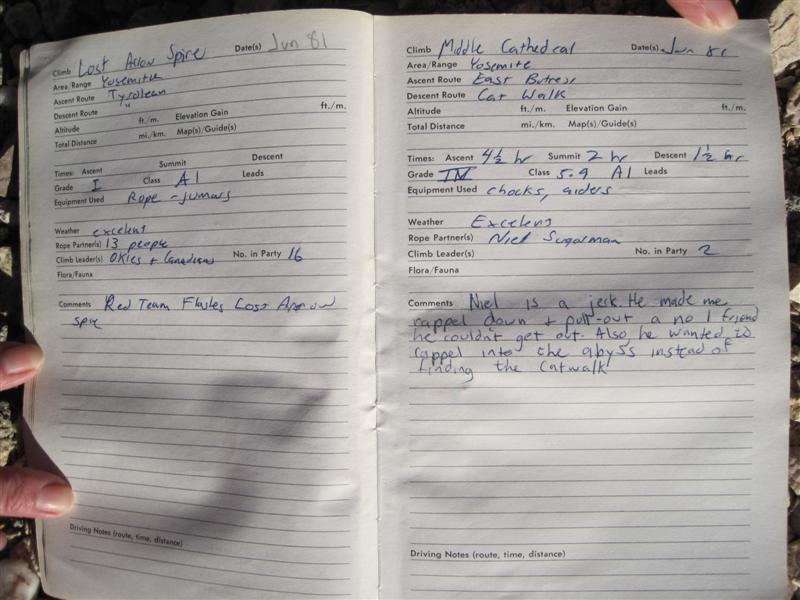 Climb Lost Arrow Spire Date(s) Jun 81
Area/Range Yosemite
Ascent Route Tyrolean
Descent Route "
Altitude ft./m. Elevation Gain ft./m.
Total Distance mi./km. Map(s)/Guide(s)
Times: Ascent Summit Descent
Grade I Class A1 Leads
Equipment Used Rope - jumars
Weather excelent
Rope Partner(s) 13 people
Climb Leader(s) Okies + Canadians No. in Party 16
Flora/Fauna
Comments Red Team Flashes Lost Arrow
spire
Driving Notes (route, time, distance)
Climb Middle Cathedral Date(s) Jun 81
Area/Range Yosemite
Ascent Route East Butress
Descent Route Cat Walk
Altitude ft./m. Elevation Gain ft./m.
Total Distance mi./km. Map(s)/Guide(s)
Times: Ascent 4½ hr Summit 2 hr Descent 1½ hr
Grade IV Class 5.9 A1 Leads
Equipment Used chocks, aiders
Weather Excelent
Rope Partner(s) Niel Sugarman
Climb Leader(s) No. in Party 2
Flora/Fauna
Comments Niel is a jerk. He made me
rappel down + pull-out a no 1 friend
he couldn't get out. Also, he wanted to
rappel into the abyss instead of
finding the Catwalk
Driving Notes (route, time, distance)